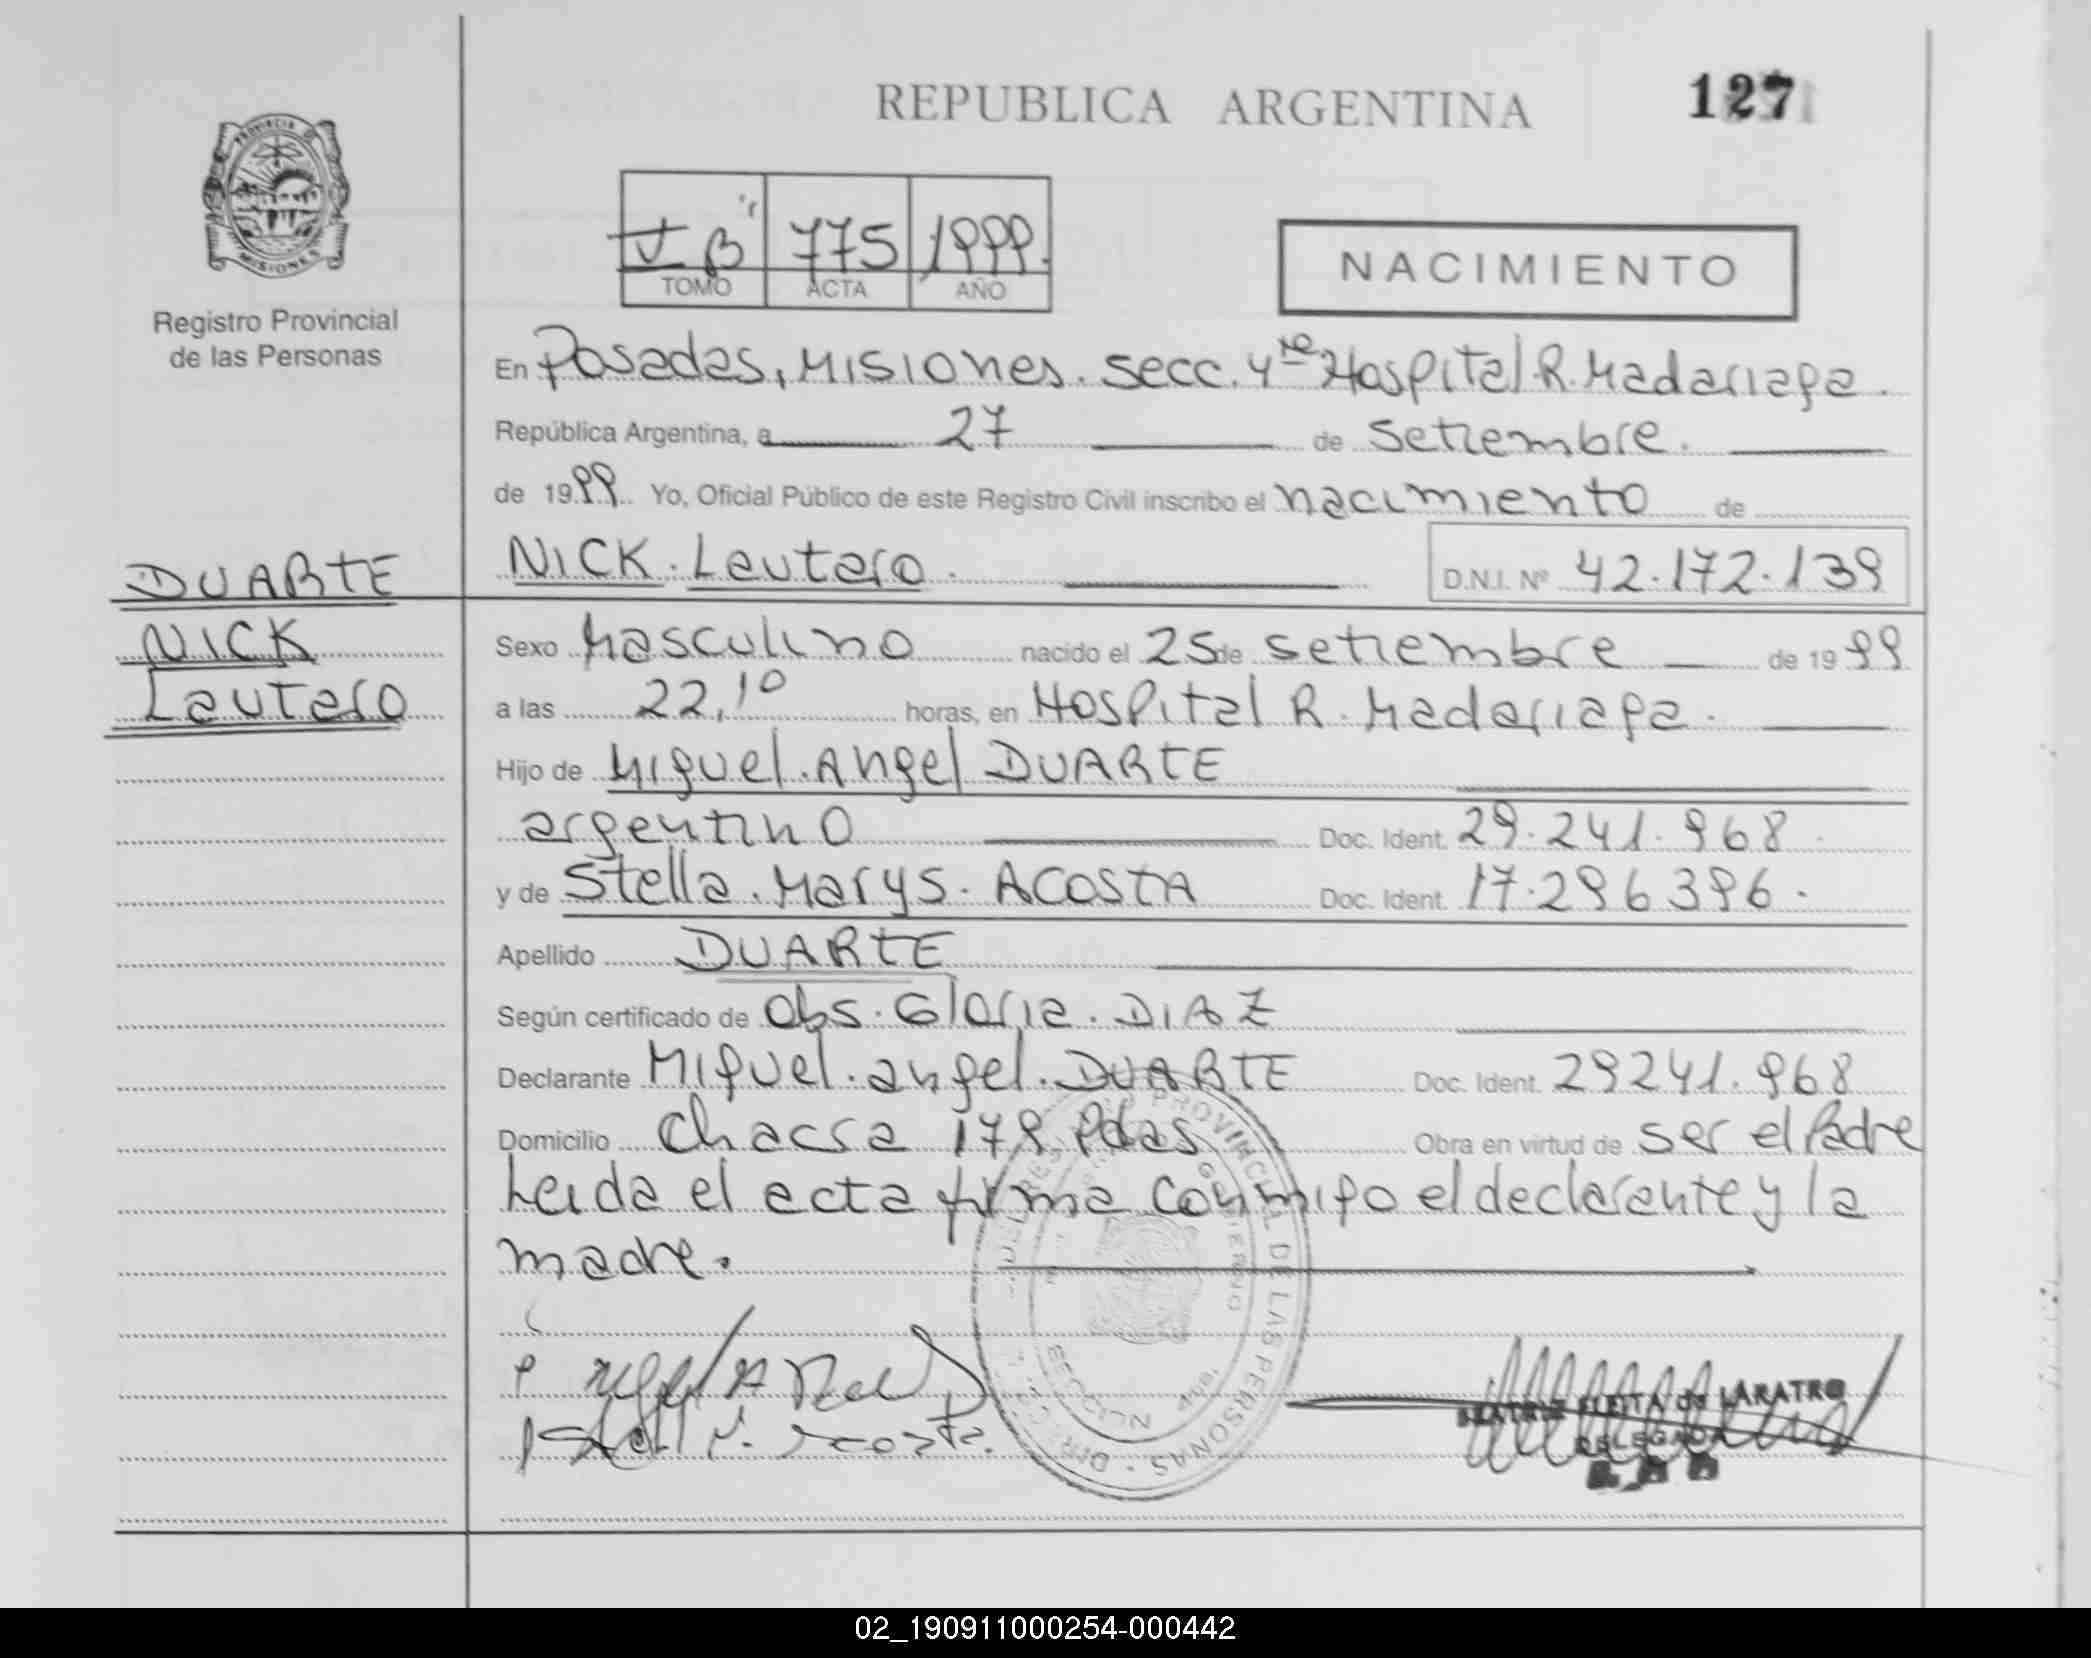 REPUBLICA ARGENTINA
127
PROVINCIA D
MISIONES
Registro Provincial
de las Personas
V B 775 1999.
TOMO ACTA AÑO
NACIMIENTO
En Posadas, Misiones. secc. 4ta Hospital R. Madariaga.
República Argentina, a 27 de Setiembre.
de 1999 Yo, Oficial Público de este Registro Civil inscribo el nacimiento de
NICK. Lautaro. D.N.I. Nº 42.172.139
DUARTE
NICK
Lautaro
Sexo Masculino nacido el 25 de setiembre de 1999
a las 22,10 horas, en Hospital R. Madariaga.
Hijo de Miguel. Angel DUARTE
argentino Doc. Ident. 29.241.968.
y de Stella. Marys. ACOSTA Doc. Ident. 17.296396.
Apellido DUARTE
Según certificado de Obs. Gloria. DIAZ
Declarante Miguel. angel. DUARTE Doc. Ident. 29241.968
Domicilio Chacra 179 Pdas Obra en virtud de ser el Padre
Leida el acta firma conmigo el declarante y la
madre.
PROVINCIAL DE LAS PERSONAS
GOBIERNO
BEATRIZ FLEITA de LARATRO
DELEGADA
02_190911000254-000442